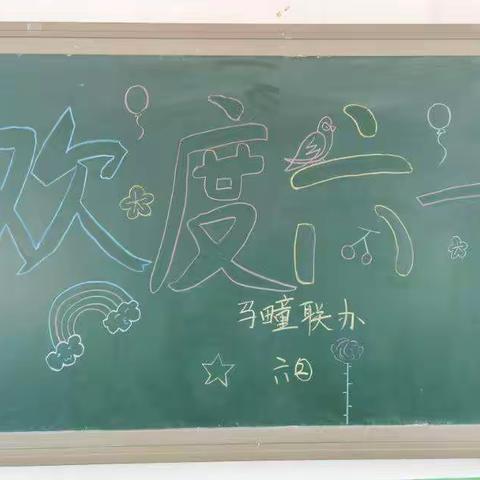 欢度六一
马疃联办
六②